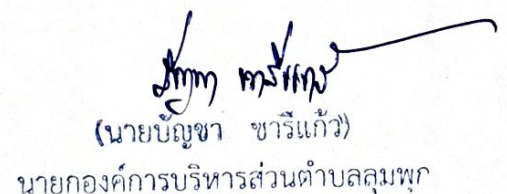 (นายบัญชา ซารีแก้ว)
นายกองค์การบริหารส่วนตำบลลุมพุก